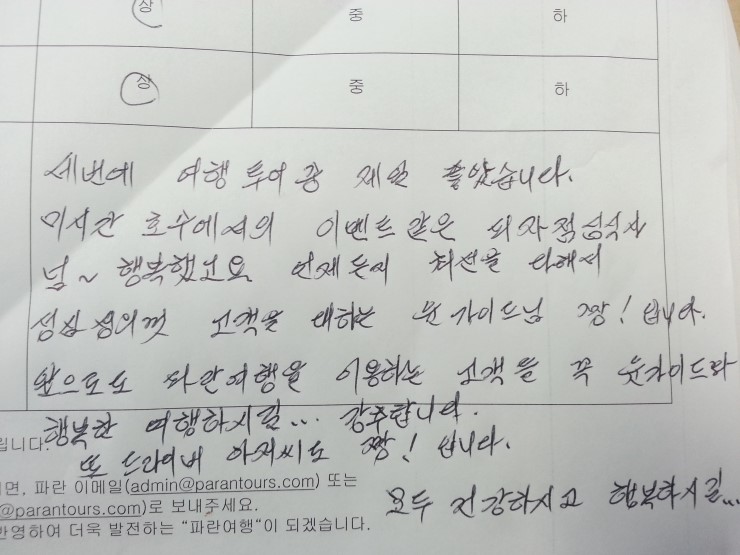 상 중 하
상 중 하
세번에 여행 투어중 제일 좋았습니다.
미시간 호수에서의 이벤트같은 피자점심식사
넘~ 행복했고요 언제든지 최선을 다해서
성심 성의껏 고객을 대하는 문가이드님 짱! 입니다.
앞으로도 파란여행을 이용하는 고객들 꼭 문가이드와
행복한 여행하시길... 강추합니다.
립니다.
또 드라이버 아저씨도 짱! 입니다.
면, 파란 이메일(admin@parantours.com) 또는
모두 건강하시고 행복하시길...
@parantours.com)로 보내주세요.
반영하여 더욱 발전하는 "파란여행"이 되겠습니다.